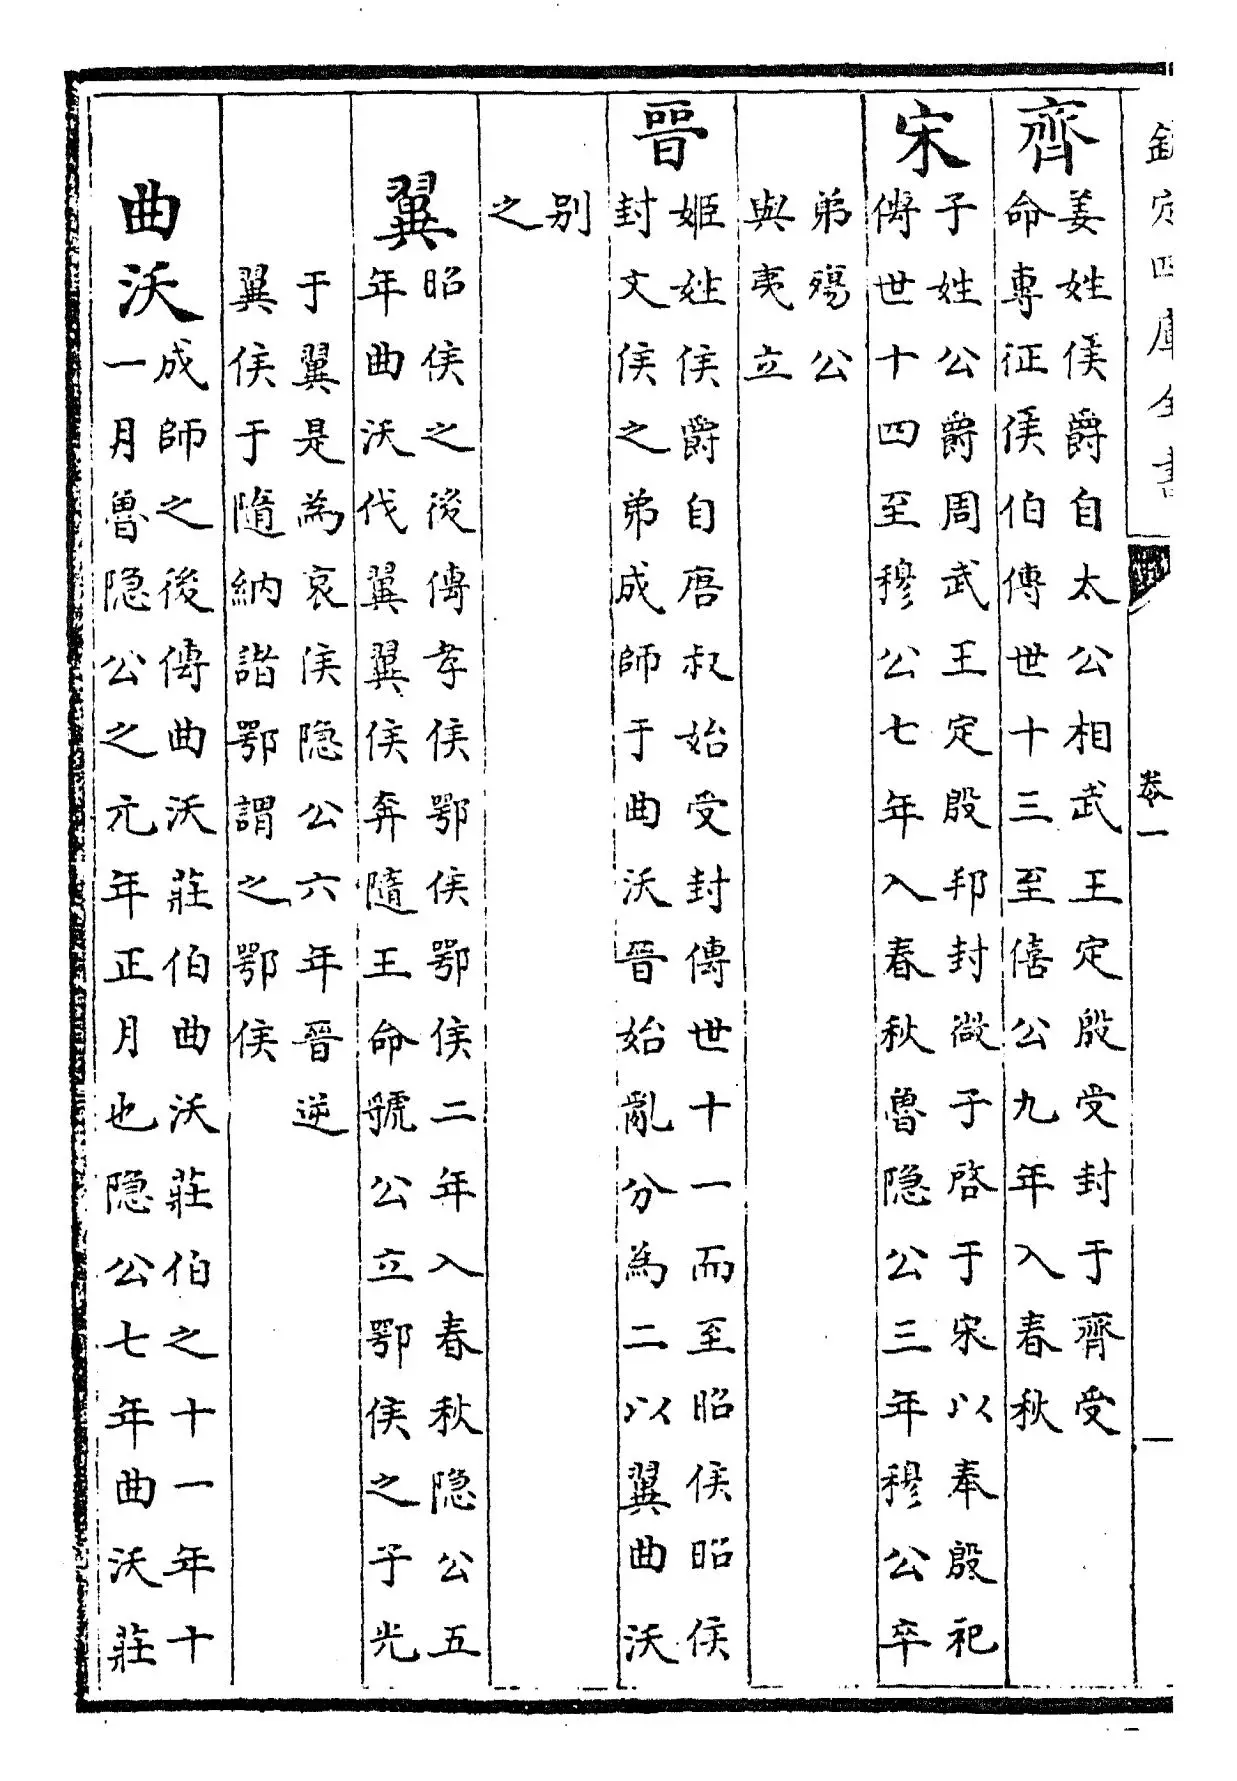 欽定四庫全書
卷一
一
齊
姜姓侯爵自太公相武王定殷受封于齊受
命專征侯伯傳世十三至僖公九年入春秋
宋
子姓公爵周武王定殷邦封微子啓于宋以奉殷祀
傳世十四至穆公七年入春秋魯隐公三年穆公卒
弟殤公
與夷立
晉
姬姓侯爵自唐叔始受封傳世十一而至昭侯昭侯
封文侯之弟成師于曲沃晉始亂分為二以翼曲沃
别
之
翼
昭侯之後傳孝侯鄂侯鄂侯二年入春秋隐公五
年曲沃伐翼翼侯奔隨王命虢公立鄂侯之子光
于翼是為哀侯隐公六年晉逆
翼侯于隨納諧鄂謂之鄂侯
曲沃
成師之後傳曲沃莊伯曲沃莊伯之十一年十
一月魯隐公之元年正月也隐公七年曲沃莊